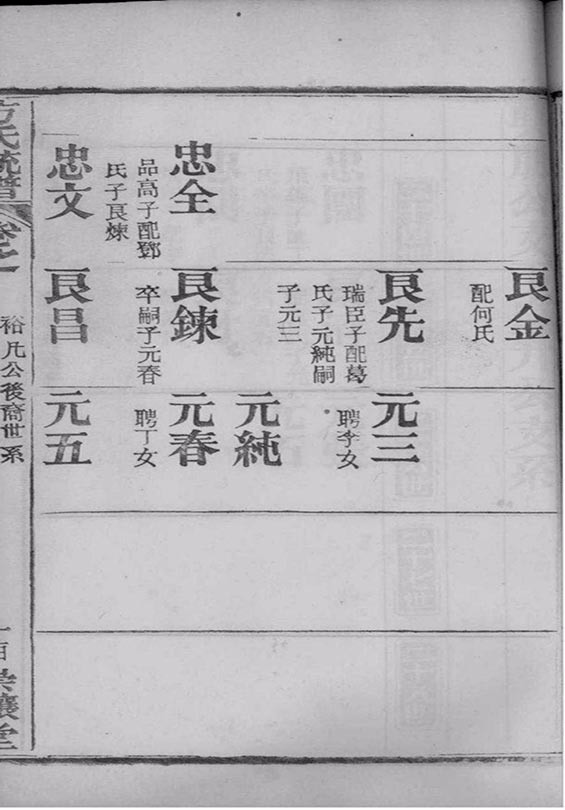 艮金
配何氏
艮先
瑞臣子配葛
氏子元純嗣
子元三
元三
聘李女
元純
忠全
品高子配鄧
氏子艮煉
艮鍊
卒嗣子元春
元春
聘丁女
忠文
艮昌
元五
方氏統譜
卷之一
裕凡公後裔世系